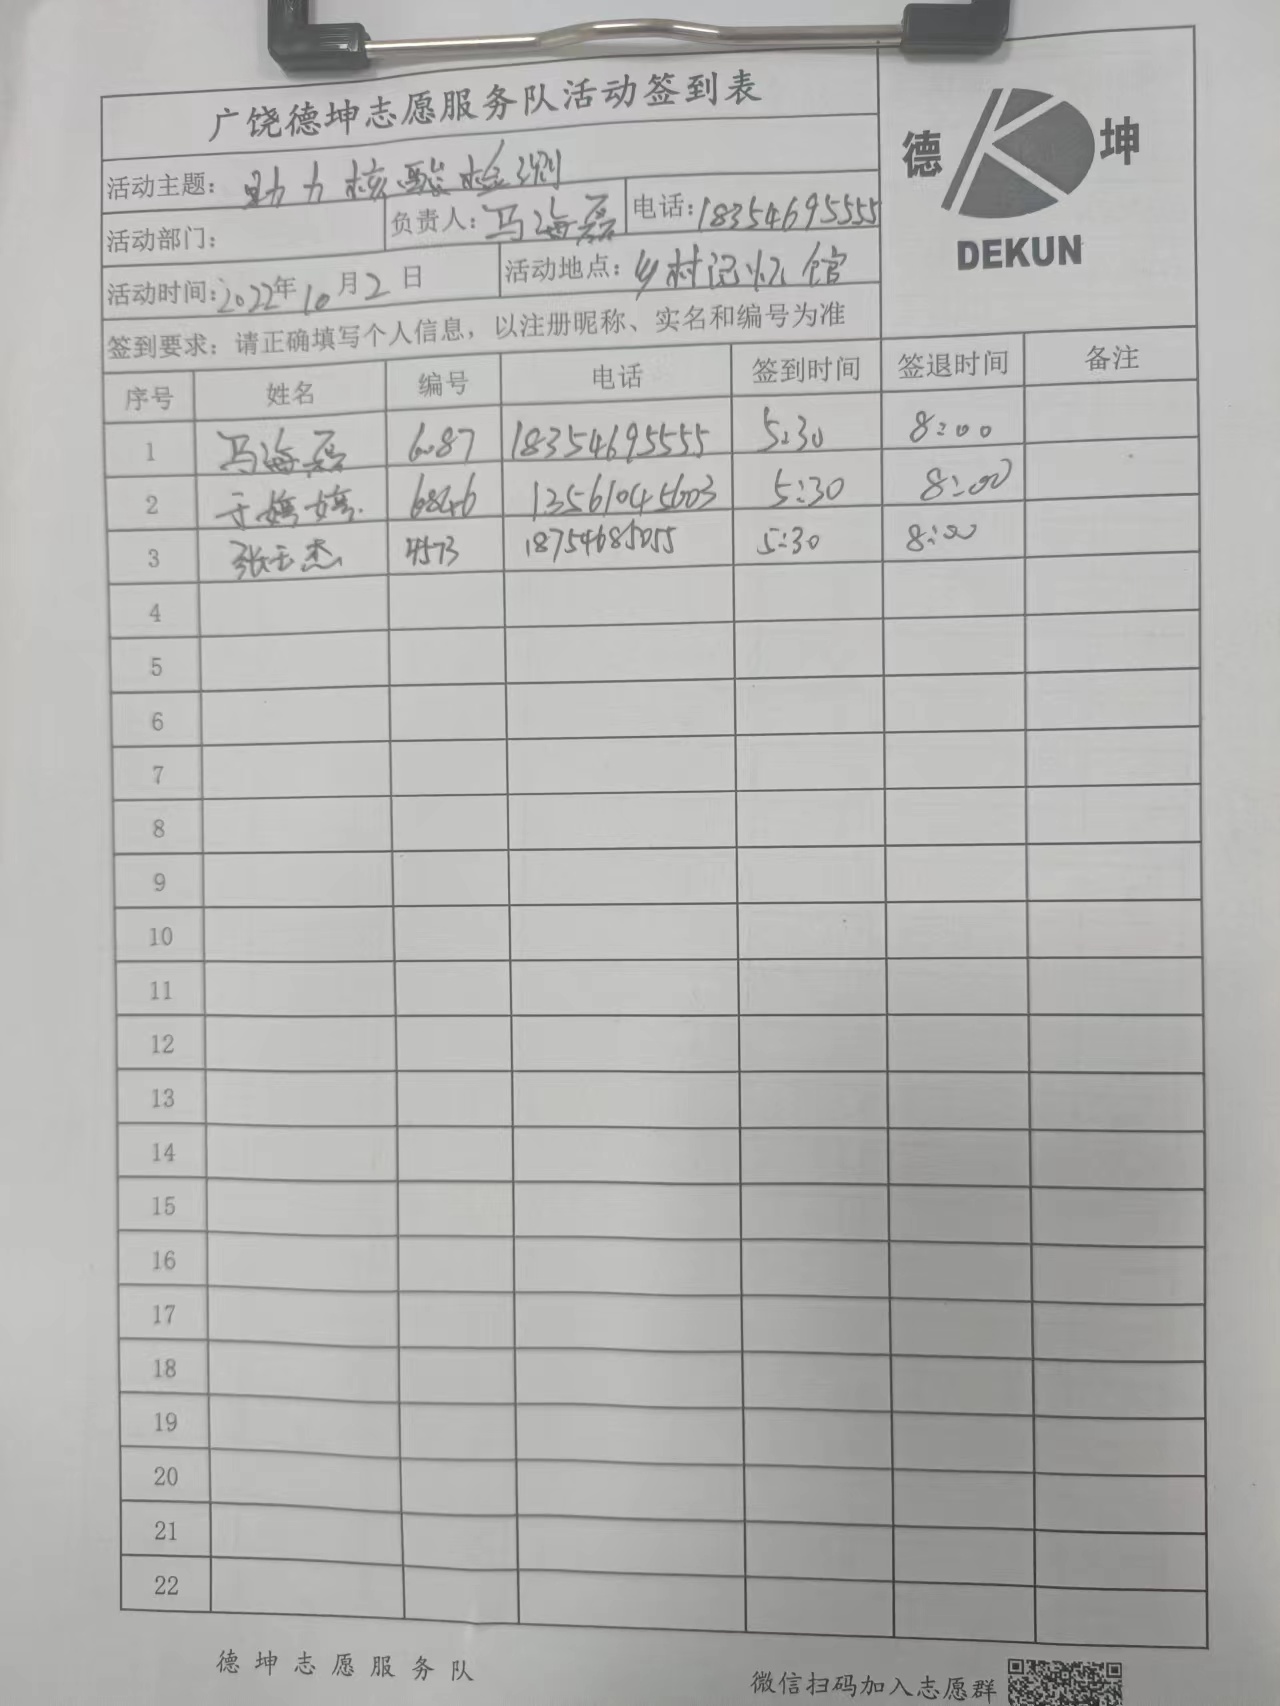 广饶德坤志愿服务队活动签到表
德 坤
DEKUN
活动主题：助力核酸检测
活动部门： 负责人：马海磊 电话：18354695555
活动时间：2022年10月2日 活动地点：乡村记忆馆
签到要求：请正确填写个人信息，以注册昵称、实名和编号为准
序号 姓名 编号 电话 签到时间 签退时间 备注
1 马海磊 6087 18354695555 5:30 8:00
2 于婷婷 6846 13561045603 5:30 8:00
3 张玉杰 4573 18754685055 5:30 8:00
4
5
6
7
8
9
10
11
12
13
14
15
16
17
18
19
20
21
22
德坤志愿服务队
微信扫码加入志愿群